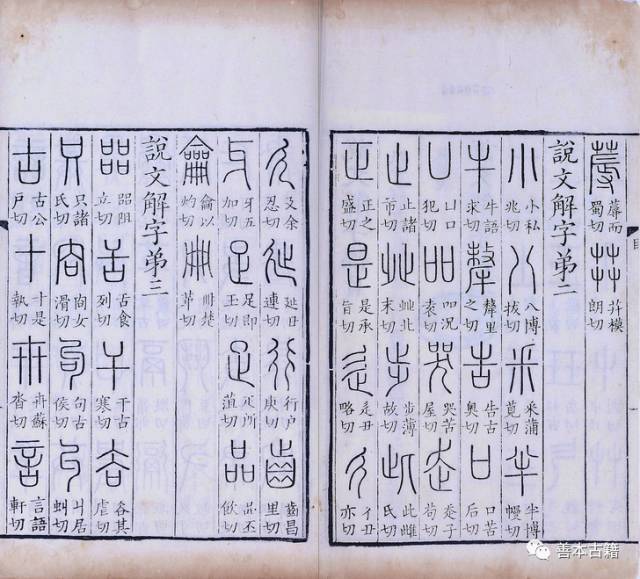 蓐 蓐而蜀切 茻 茻模朗切
說文解字弟二
小 小私兆切 八 八博拔切 釆 釆蒲莧切 半 半博幔切
牛 牛語求切 犛 犛里之切 告 告古奥切 口 口苦后切
凵 凵口犯切 吅 吅况袁切 哭 哭苦屋切 走 走子苟切
止 止諸市切 癶 癶北末切 步 步薄故切 此 此雌氏切
正 正之盛切 是 是承旨切 辵 辵丑略切 彳 彳丑亦切
廴 廴余忍切 㢟 㢟丑連切 行 行戶庚切 齒 齒昌里切
牙 牙五加切 足 足即玉切 疋 疋所菹切 品 品丕飲切
龠 龠以灼切 冊 冊楚革切
說文解字弟三
㗊 㗊阻立切 舌 舌食列切 干 干古寒切 谷 谷其虐切
只 只諸氏切 㕯 㕯女滑切 句 句古侯切 丩 丩居虯切
古 古公戶切 十 十是執切 卅 卅蘇沓切 言 言語軒切
善本古籍